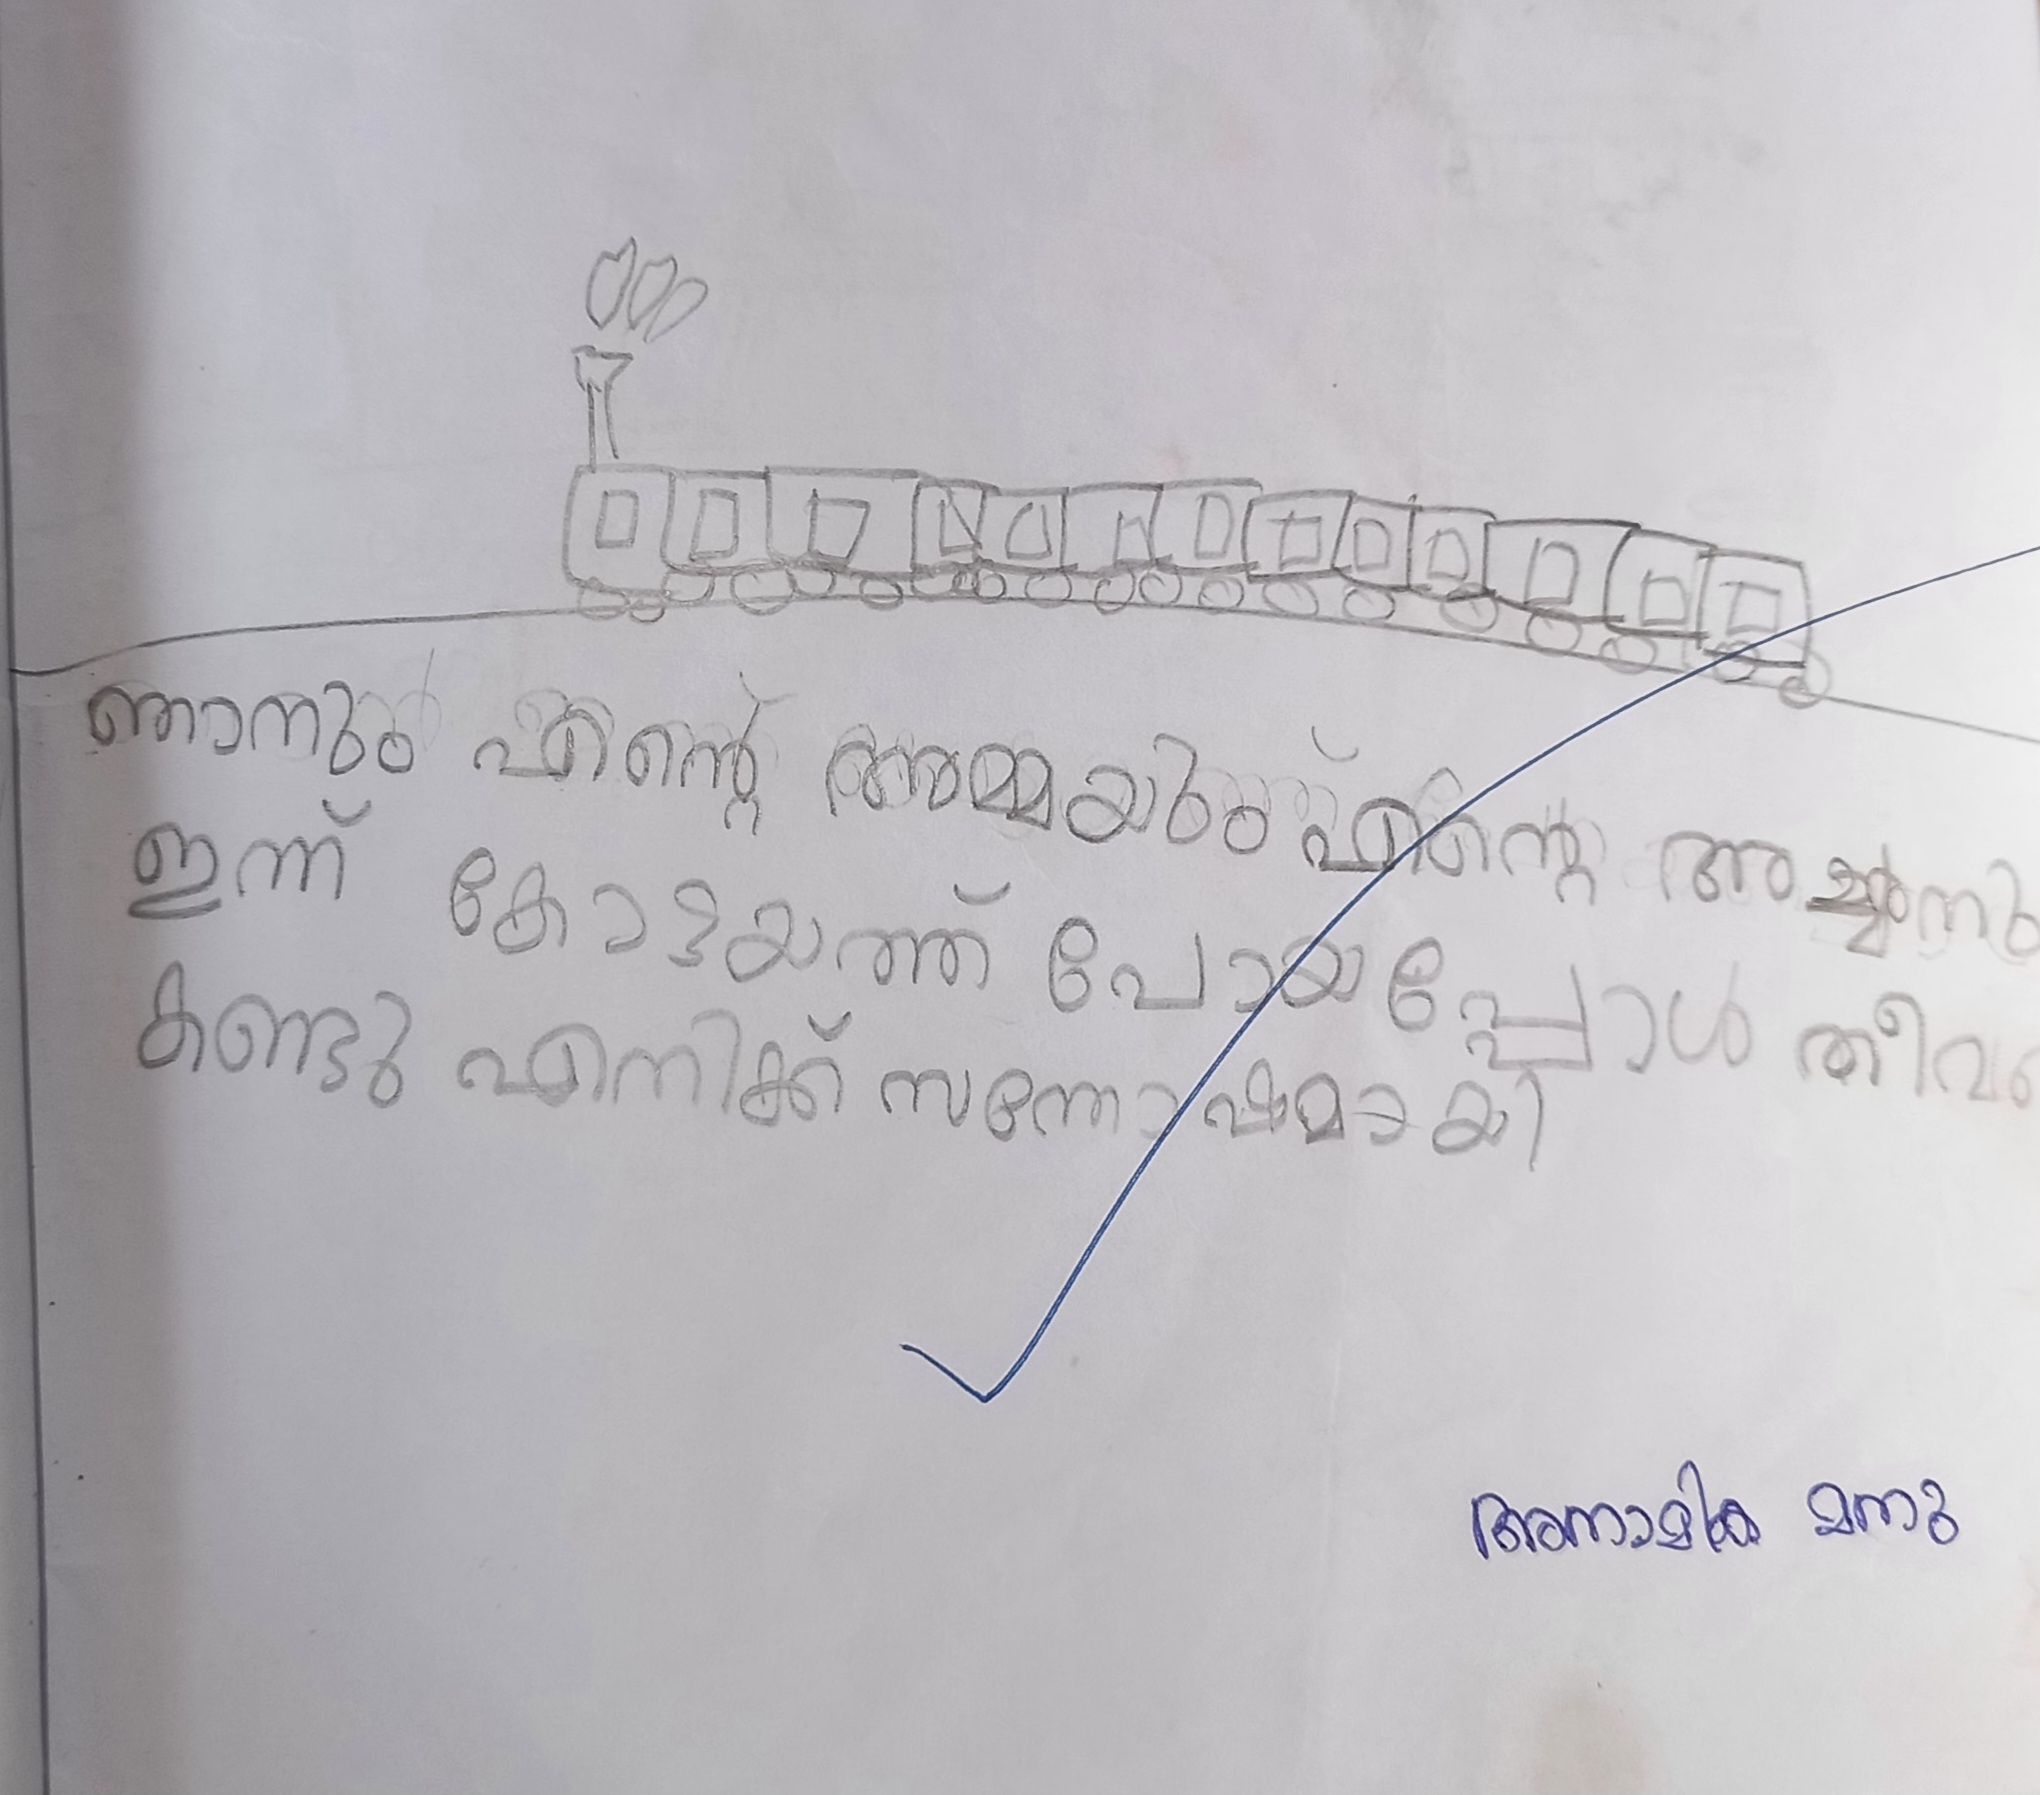 ഞാനും എന്റെ അമ്മയും എന്റെ അച്ഛനു
ഇന്ന് കോട്ടയത്ത് പോയപ്പോൾ തീവ
കണ്ടു എനിക്ക് സന്തോഷമായി
അനാമിക മനു